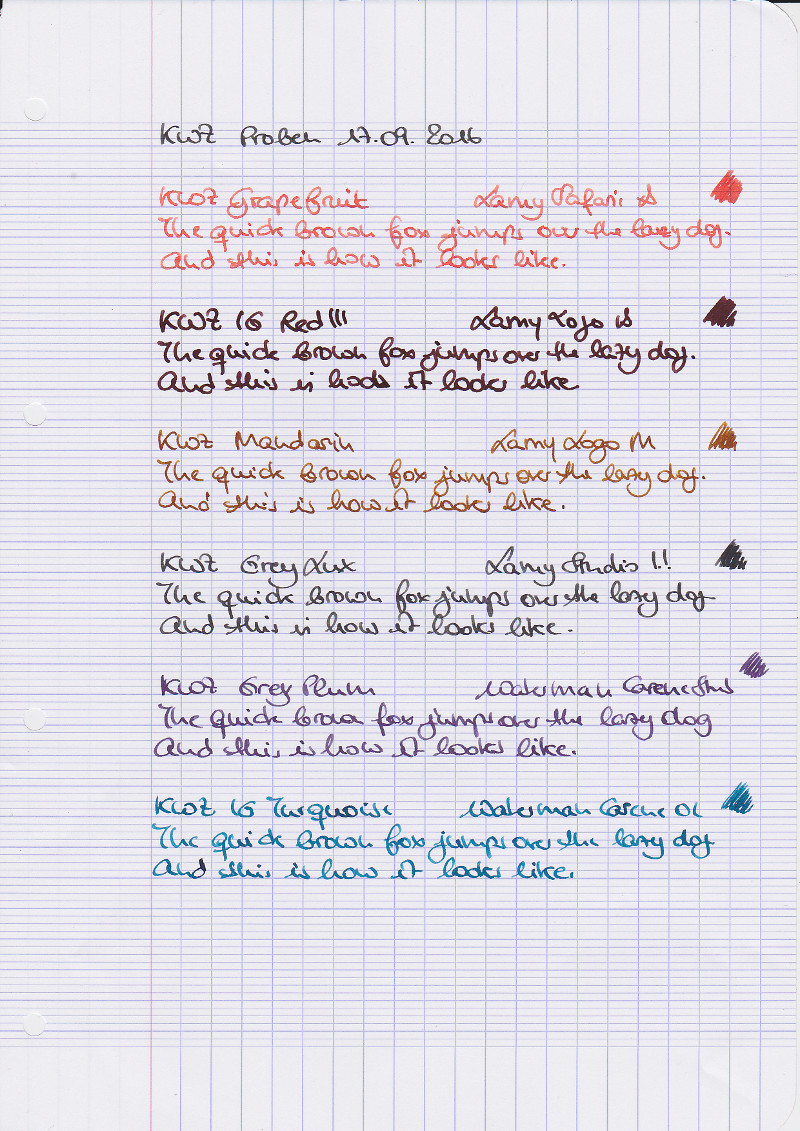 KWZ Proben 17.09.2016
KWZ Grapefruit Lamy Safari
The quick brown fox jumps over the lazy dog.
And this is how it looks like.
KWZ IG Red Lamy Logo
The quick brown fox jumps over the lazy dog.
And this is it looks like
KWZ Mandarin Lamy Logo M
The quick brown fox jumps over the lazy dog.
And this is how it looks like.
KWZ Grey Lux Lamy Studio 1.1
The quick brown fox jumps over the lazy dog
And this is how it looks like.
KWZ Grey Plum Waterman Carene
The quick brown fox jumps over the lazy dog
And this is how it looks like.
KWZ IG Turquoise Waterman Carene
The quick brown fox jumps over the lazy dog
And this is how it looks like.